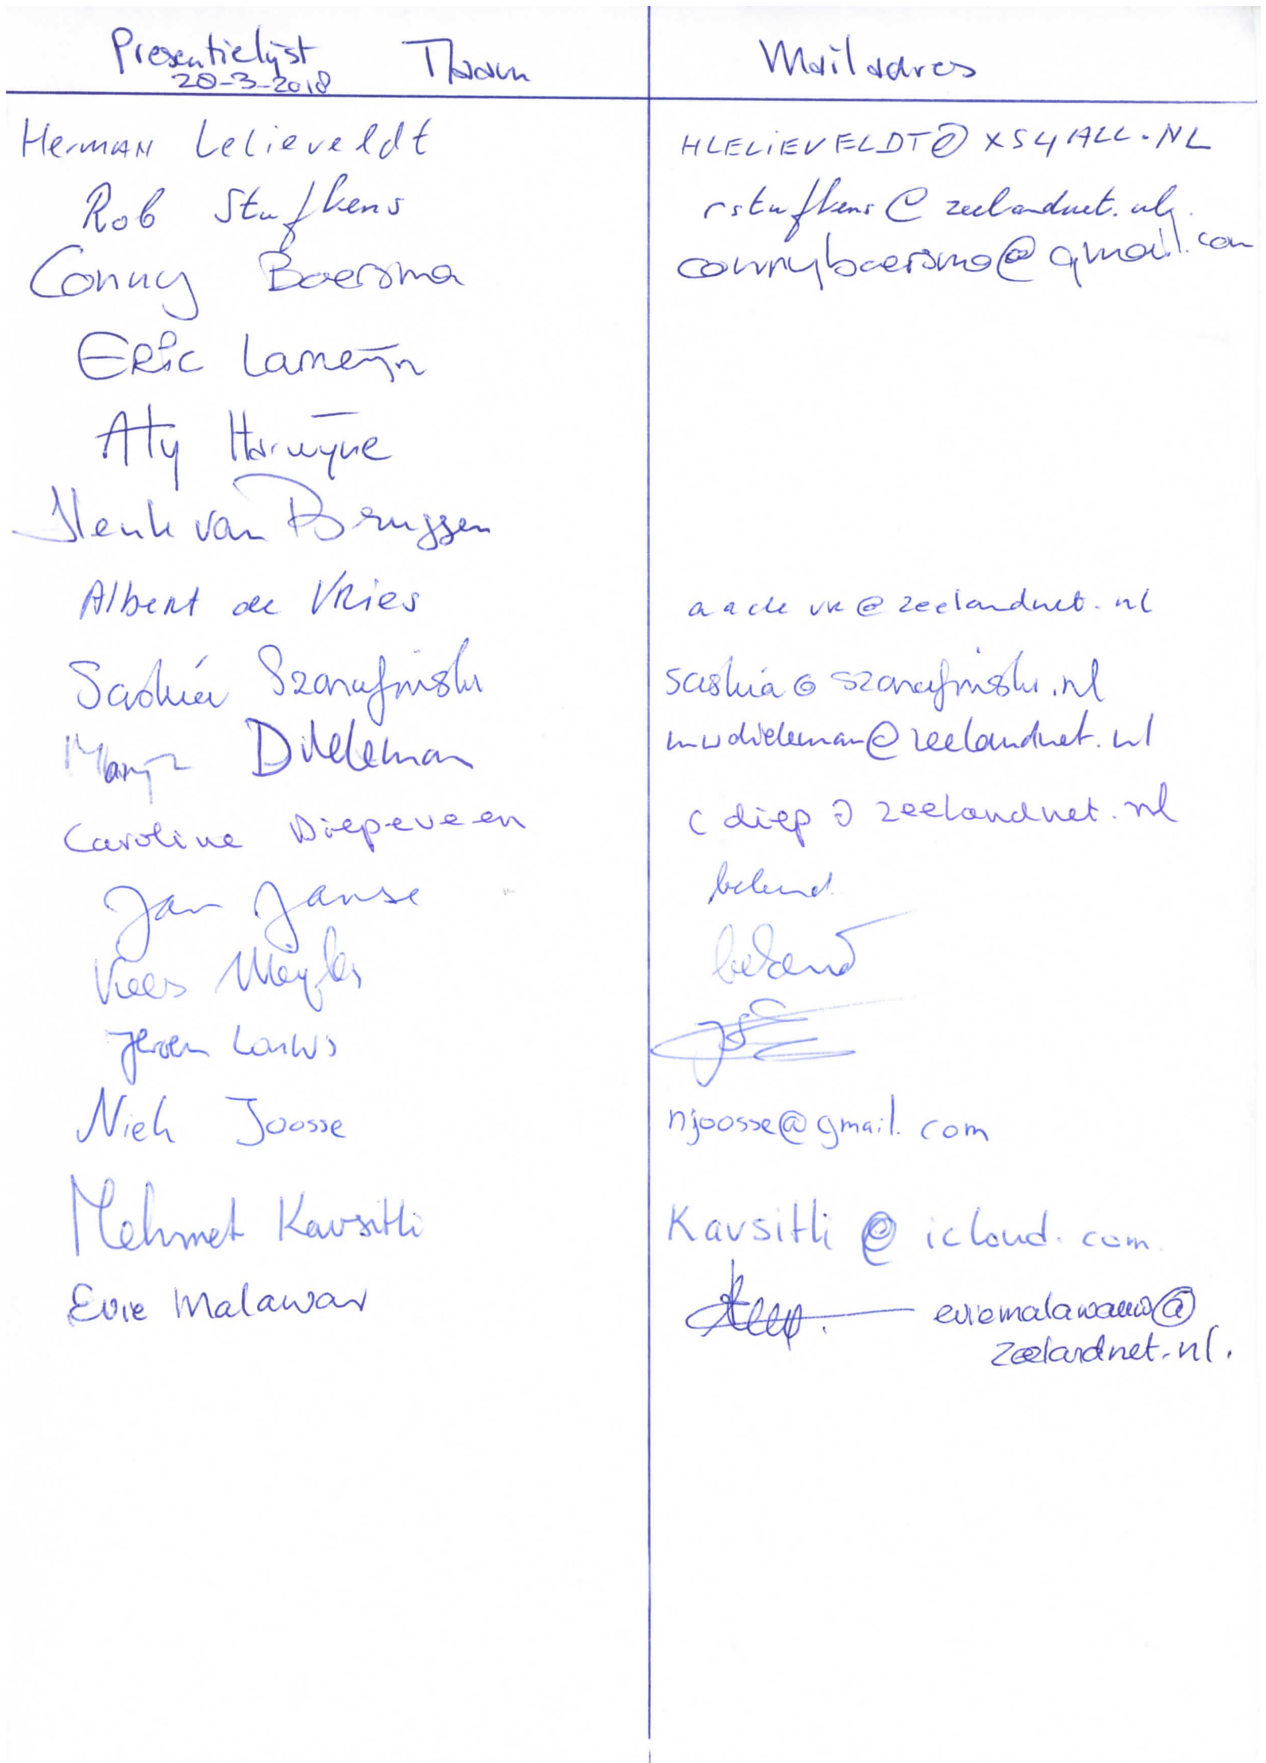 Presentielijst Naam Mailadres
28-3-2018
Herman Lelieveldt HLELIEVELDT@XS4ALL.NL
Rob Stufkens rstufkens@zeelandnet.nl
Conny Boersma connyboersma@gmail.com
Eric Lameijn
Aty Harwijne
Henk van Bruggen
Albert de Vries aadevr@zeelandnet.nl
Saskia Szarafinski saskia@szarafinski.nl
Dieleman mwdieleman@zeelandnet.nl
Caroline Diepeveen cdiep@zeelandnet.nl
Jan Janse bekend
Kees bekend
Jeroen
Niek Joosse njoosse@gmail.com
Mehmet Kavsitli Kavsitli@icloud.com
Evie Malawau eviemalawau@
zeelandnet.nl.